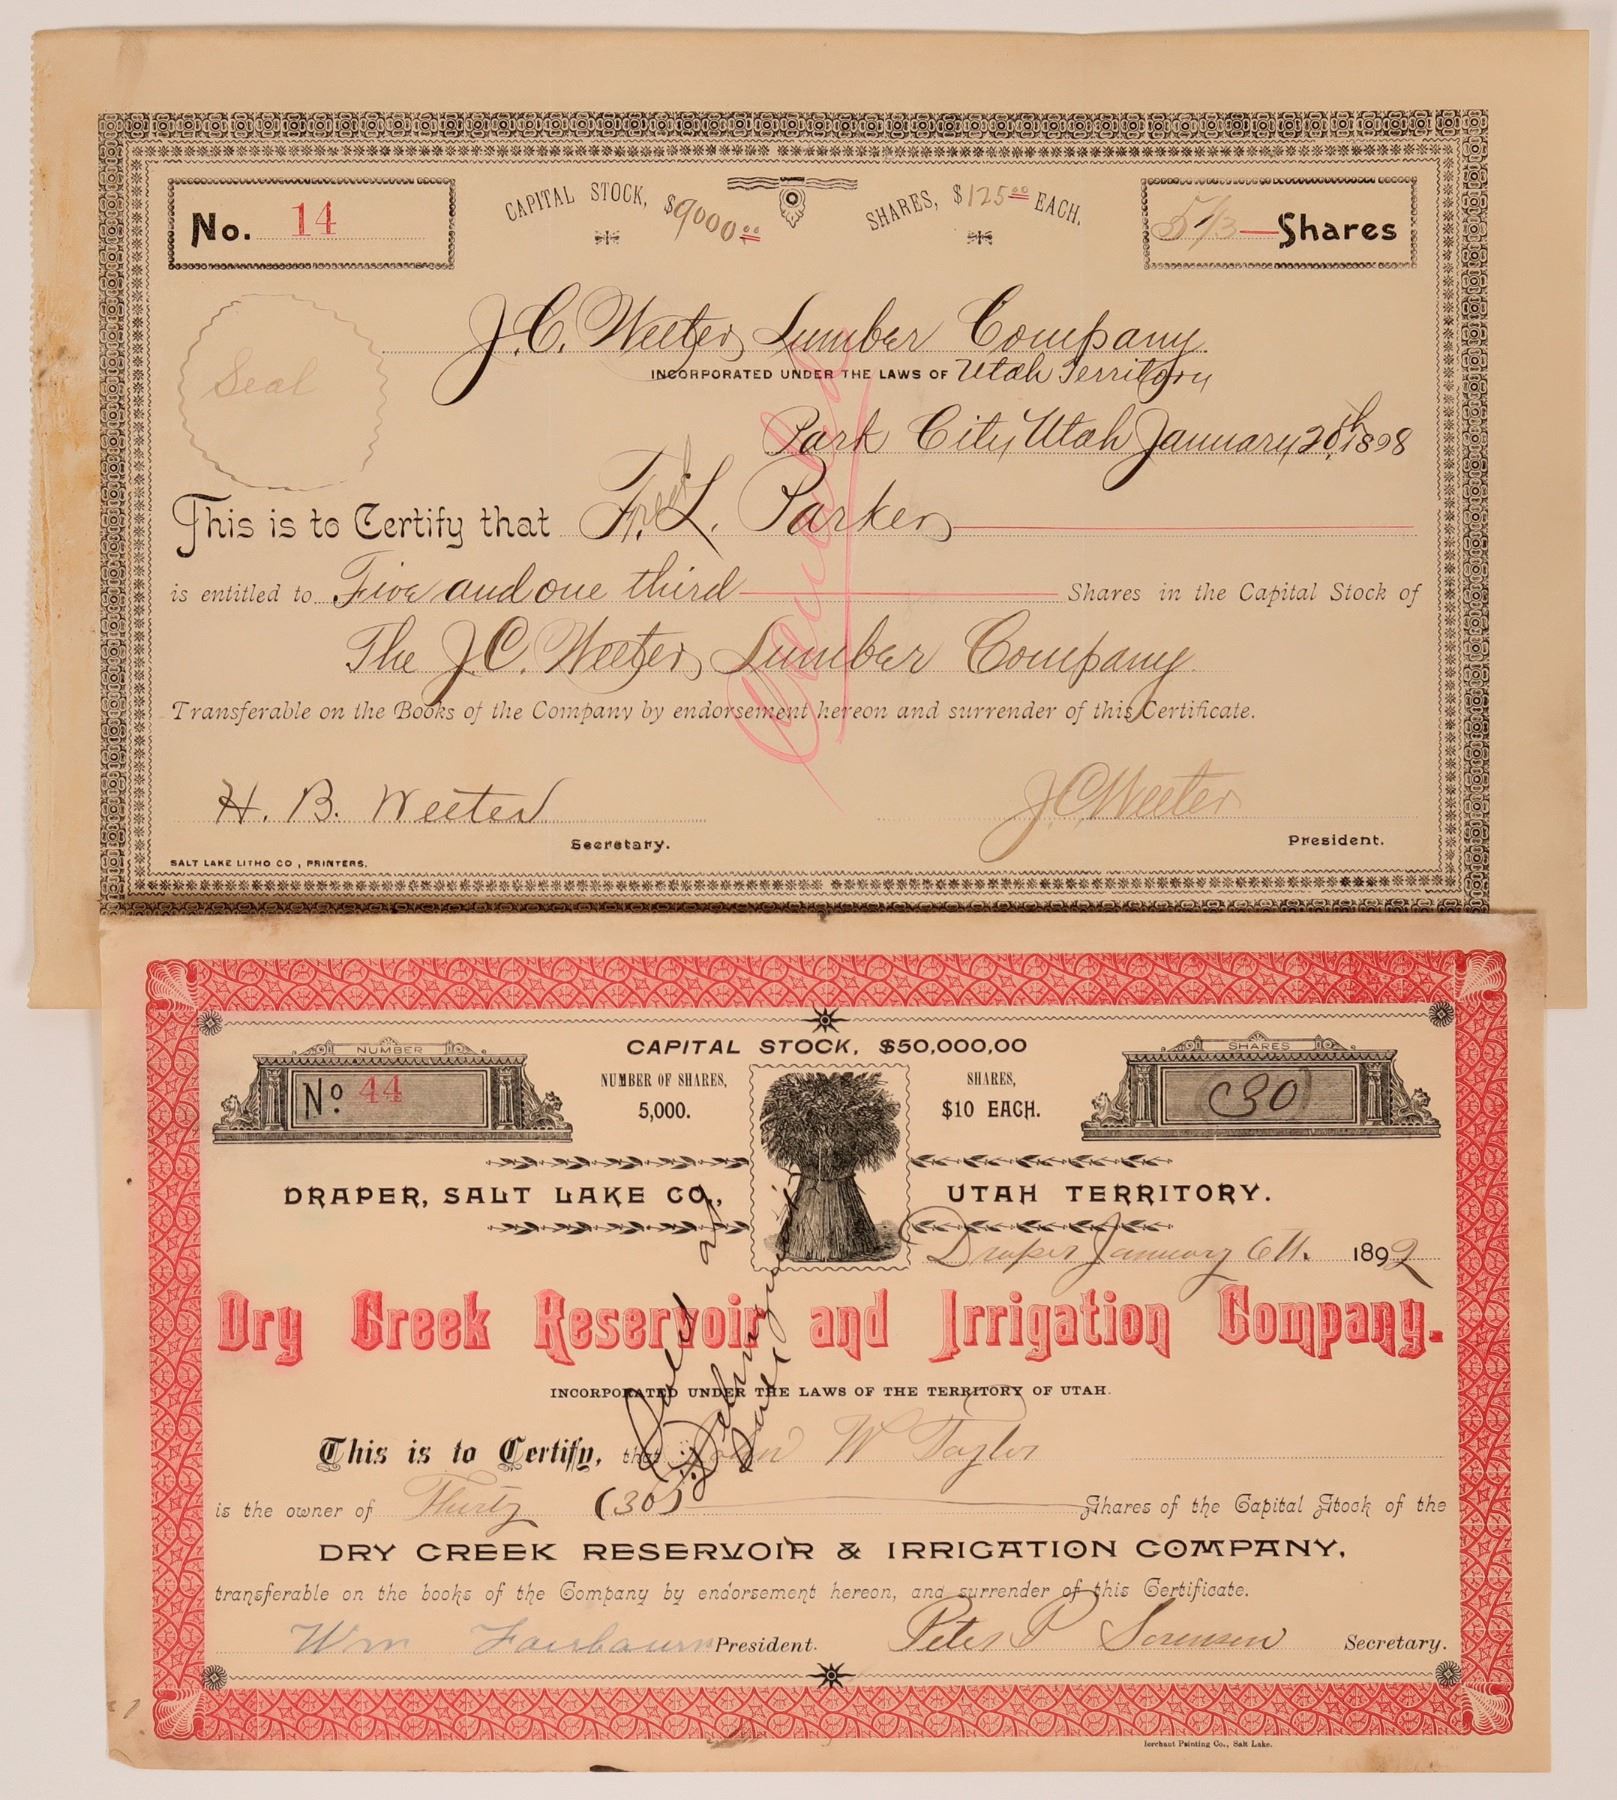 No. 14
CAPITAL STOCK, $9000.00
SHARES, $125.00 EACH.
5 1/3 Shares
Seal
J.C. Weeter Lumber Company
INCORPORATED UNDER THE LAWS OF Utah Territory
Park City Utah January 20th, 1898
This is to Certify that Fred L. Parker
is entitled to Five and one third Shares in the Capital Stock of
The J.C. Weeter Lumber Company
Transferable on the Books of the Company by endorsement hereon and surrender of this Certificate.
Cancelled
H. B. Weeter Secretary.
J C Weeter President.
SALT LAKE LITHO CO., PRINTERS.
NUMBER
No. 44
CAPITAL STOCK, $50,000,00
NUMBER OF SHARES, 5,000.
SHARES, $10 EACH.
SHARES
(30)
DRAPER, SALT LAKE CO., UTAH TERRITORY.
Draper January 6th. 1892
Dry Creek Reservoir and Irrigation Company.
INCORPORATED UNDER THE LAWS OF THE TERRITORY OF UTAH.
This is to Certify, that John W Taylor
is the owner of Thirty (30) Shares of the Capital Stock of the
DRY CREEK RESERVOIR & IRRIGATION COMPANY,
transferable on the books of the Company by endorsement hereon, and surrender of this Certificate.
Wm Fairbourn President.
Peter P Sorensen Secretary.
Merchant Printing Co., Salt Lake.